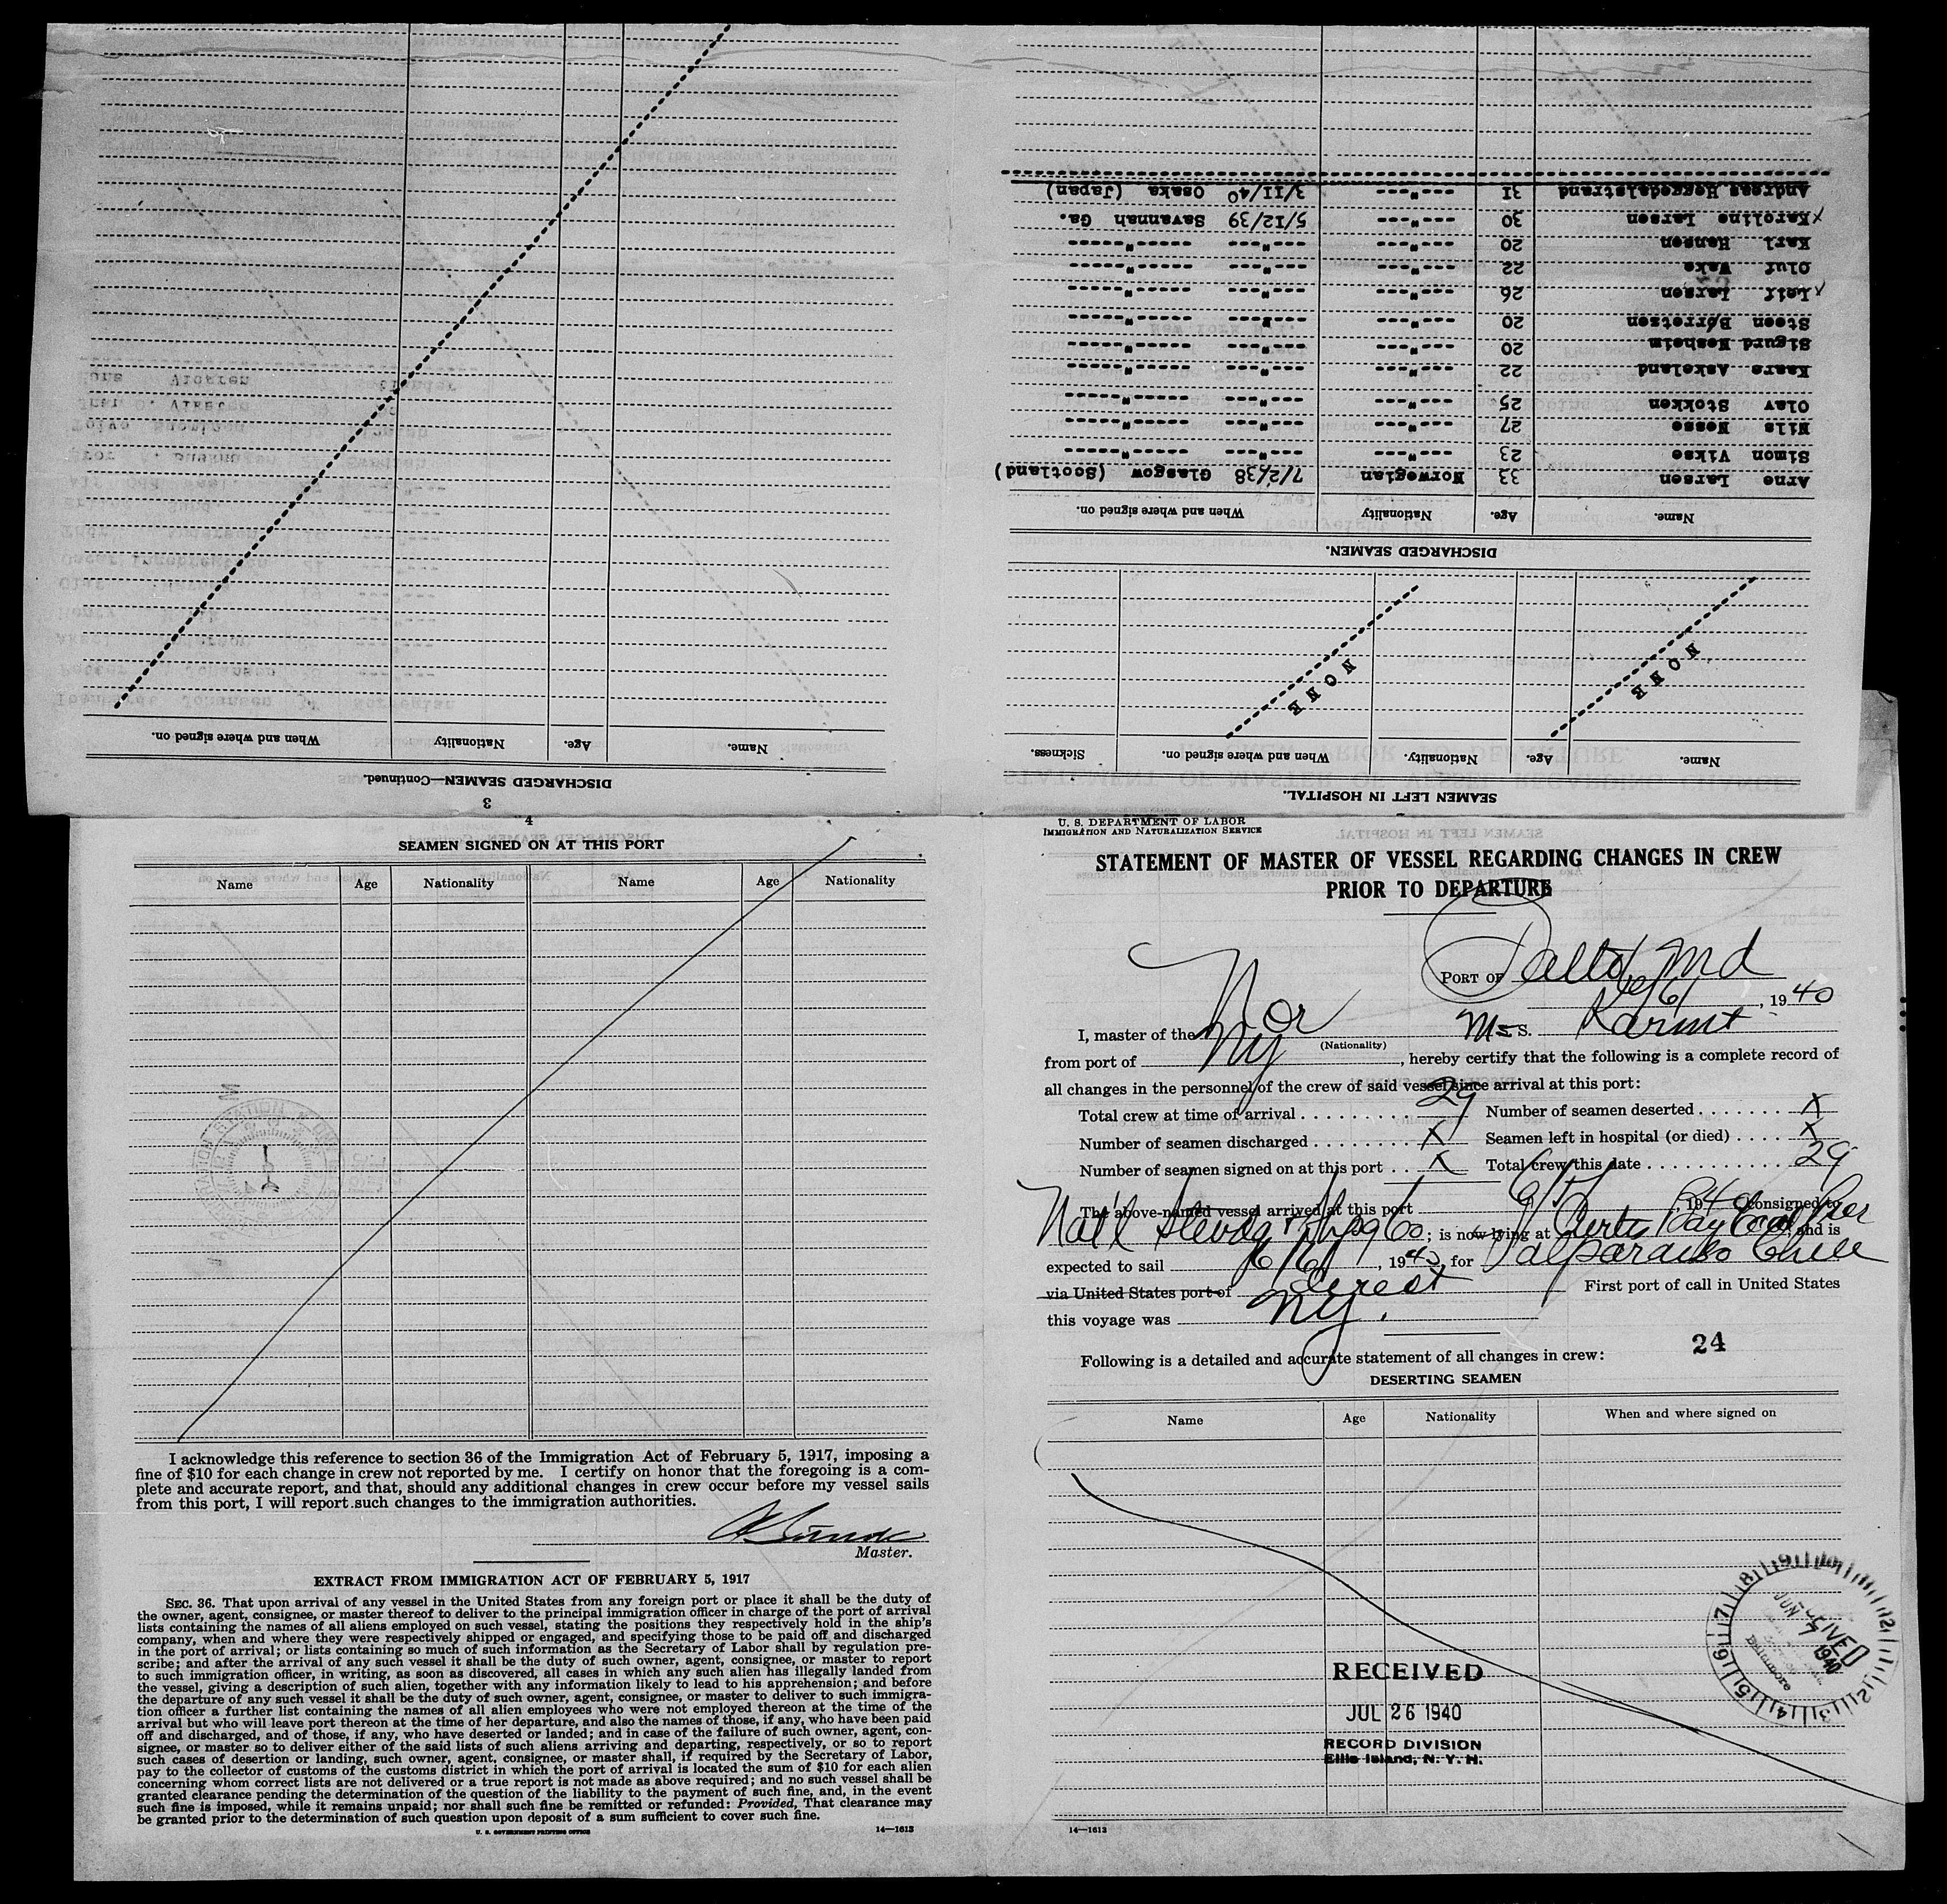 3
DISCHARGED SEAMEN—Continued.
Name. Age. Nationality When and where signed on.
SEAMEN LEFT IN HOSPITAL.
Name. Age. Nationality. When and where signed on. Sickness.
NONE NONE
DISCHARGED SEAMEN.
Name. Age. Nationality When and where signed on.
Arne Larsen 33 Norwegian 7/2/38 Glasgow (Scotland)
Simon Vikse 23 ---"--- ---"--- -----"-----
Nils Nesse 27 ---"--- ---"--- -----"-----
Olav Stokken 25 ---"--- ---"--- -----"-----
Kaare Askeland 22 ---"--- ---"--- -----"-----
Sigurd Nesheim 20 ---"--- ---"--- -----"-----
Steen Børretzen 20 ---"--- ---"--- -----"-----
x Leif Larsen 26 ---"--- ---"--- -----"-----
Oluf Vake 22 ---"--- ---"--- -----"-----
Karl Hansen 20 ---"--- ---"--- -----"-----
x Karoline Larsen 30 ---"--- 5/12/39 Savannah Ga.
Andreas Heggedalstrand 31 ---"--- 3/11/40 Osaka (Japan)
4
SEAMEN SIGNED ON AT THIS PORT
Name Age Nationality Name Age Nationality
I acknowledge this reference to section 36 of the Immigration Act of February 5, 1917, imposing a
fine of $10 for each change in crew not reported by me. I certify on honor that the foregoing is a com-
plete and accurate report, and that, should any additional changes in crew occur before my vessel sails
from this port, I will report such changes to the immigration authorities.
Master.
EXTRACT FROM IMMIGRATION ACT OF FEBRUARY 5, 1917
SEC. 36. That upon arrival of any vessel in the United States from any foreign port or place it shall be the duty of
the owner, agent, consignee, or master thereof to deliver to the principal immigration officer in charge of the port of arrival
lists containing the names of all aliens employed on such vessel, stating the positions they respectively hold in the ship's
company, when and where they were respectively shipped or engaged, and specifying those to be paid off and discharged
in the port of arrival; or lists containing so much of such information as the Secretary of Labor shall by regulation pre-
scribe; and after the arrival of any such vessel it shall be the duty of such owner, agent, consignee, or master to report
to such immigration officer, in writing, as soon as discovered, all cases in which any such alien has illegally landed from
the vessel, giving a description of such alien, together with any information likely to lead to his apprehension; and before
the departure of any such vessel it shall be the duty of such owner, agent, consignee, or master to deliver to such immigra-
tion officer a further list containing the names of all alien employees who were not employed thereon at the time of the
arrival but who will leave port thereon at the time of her departure, and also the names of those, if any, who have been paid
off and discharged, and of those, if any, who have deserted or landed; and in case of the failure of such owner, agent, con-
signee, or master so to deliver either of the said lists of such aliens arriving and departing, respectively, or so to report
such cases of desertion or landing, such owner, agent, consignee, or master shall, if required by the Secretary of Labor,
pay to the collector of customs of the customs district in which the port of arrival is located the sum of $10 for each alien
concerning whom correct lists are not delivered or a true report is not made as above required; and no such vessel shall be
granted clearance pending the determination of the question of the liability to the payment of such fine, and, in the event
such fine is imposed, while it remains unpaid; nor shall such fine be remitted or refunded: Provided, That clearance may
be granted prior to the determination of such question upon deposit of a sum sufficient to cover such fine.
U. S. GOVERNMENT PRINTING OFFICE 14—1613
U. S. DEPARTMENT OF LABOR
IMMIGRATION AND NATURALIZATION SERVICE
STATEMENT OF MASTER OF VESSEL REGARDING CHANGES IN CREW
PRIOR TO DEPARTURE
PORT OF Balto, Md
6/6/, 1940
I, master of the Nor M S. Karmt
(Nationality)
from port of Ny, hereby certify that the following is a complete record of
all changes in the personnel of the crew of said vessel since arrival at this port:
Total crew at time of arrival 29 Number of seamen deserted X
Number of seamen discharged X Seamen left in hospital (or died) X
Number of seamen signed on at this port X Total crew this date 29
The above-named vessel arrived at this port 6/5/, 1940 consigned to
Nat'l Stevdg & Shpg Co; is now lying at Curtis Bay Coal Pier and is
expected to sail 6/6/, 1940, for Valparaiso Chile
via United States port of direct First port of call in United States
this voyage was Ny.
24
Following is a detailed and accurate statement of all changes in crew:
DESERTING SEAMEN
Name Age Nationality When and where signed on
RECEIVED
JUN 7 1940
Baltimore
RECEIVED
JUL 26 1940
RECORD DIVISION
Ellis Island, N. Y. H.
14—1613